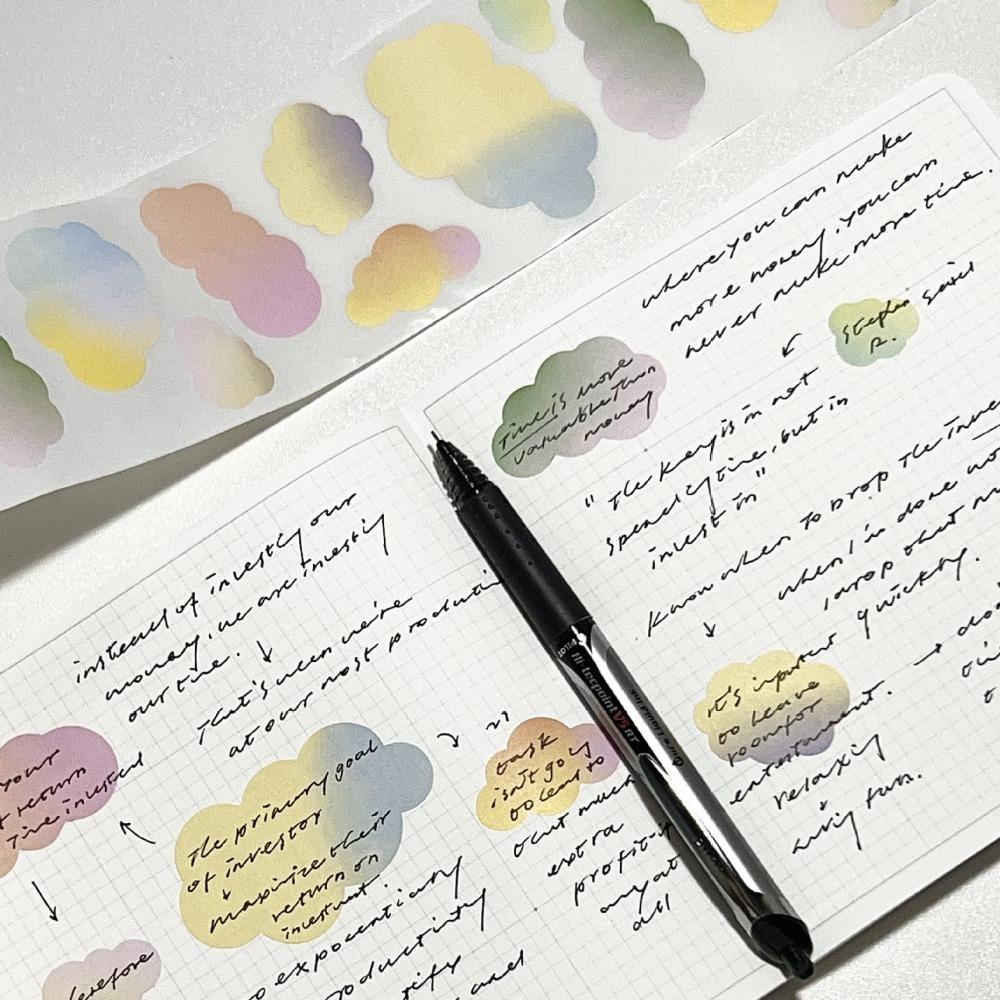 instead of investly our
money, we are investiy
our time.
That's when we're
at our most producti
your
return
Time invested
The primary goal
of investor
maximize their
return on
investment
to expocentially
productivity
and
herefore
task
isn't go
to lead to
that much
extra
profit if
any at
all
where you can make
more money, you can
never make more time.
Stephen
R.
Time is more
valuable than
money
"The key is in not
spending time, but in
invest in"
Know when to Drop The
when I'm done
drop that
quickly.
it's important
to leave
room for
entertainment.
relaxiy
fun.
PILOT
Hi-tecpoint V5 RT
Pure Liquid Ink